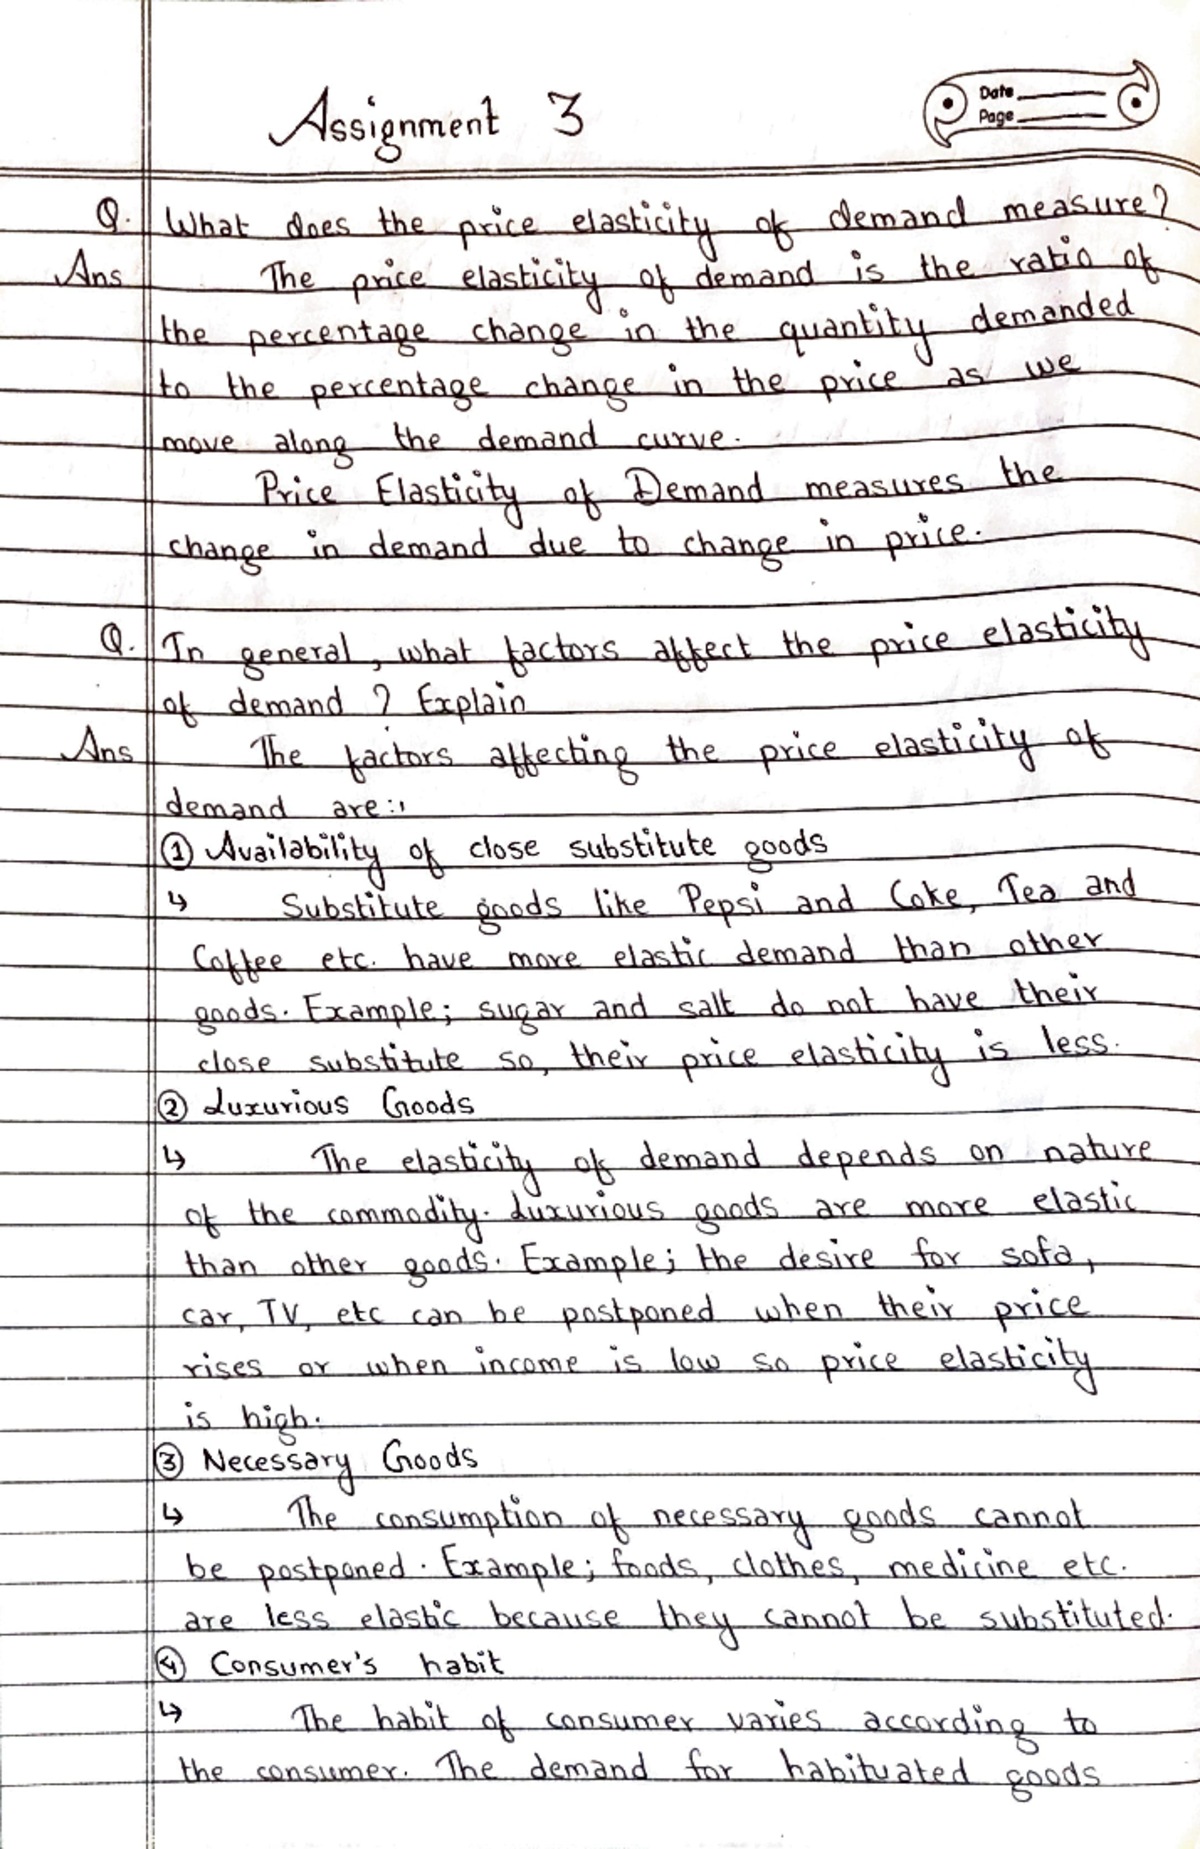 Assignment 3
Date
Page
Q. What does the price elasticity of demand measure?
Ans The price elasticity of demand is the ratio of
the percentage change in the quantity demanded
to the percentage change in the price as we
move along the demand curve.
Price Elasticity of Demand measures the
change in demand due to change in price.
Q. In general, what factors affect the price elasticity
of demand ? Explain
Ans The factors affecting the price elasticity of
demand are:
① Availability of close substitute goods
↳ Substitute goods like Pepsi and Coke, Tea and
Coffee etc. have more elastic demand than other
goods. Example; sugar and salt do not have their
close substitute so, their price elasticity is less.
② Luxurious Goods
↳ The elasticity of demand depends on nature
of the commodity. Luxurious goods are more elastic
than other goods. Example; the desire for sofa,
car, TV, etc can be postponed when their price
rises or when income is low so price elasticity
is high.
③ Necessary Goods
↳ The consumption of necessary goods cannot
be postponed. Example; foods, clothes, medicine etc.
are less elastic because they cannot be substituted.
④ Consumer's habit
↳ The habit of consumer varies according to
the consumer. The demand for habituated goods